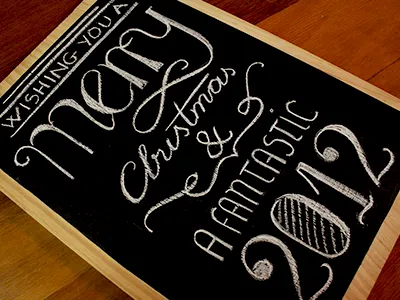 WISHING YOU A
Merry
Christmas
&
A FANTASTIC
2012